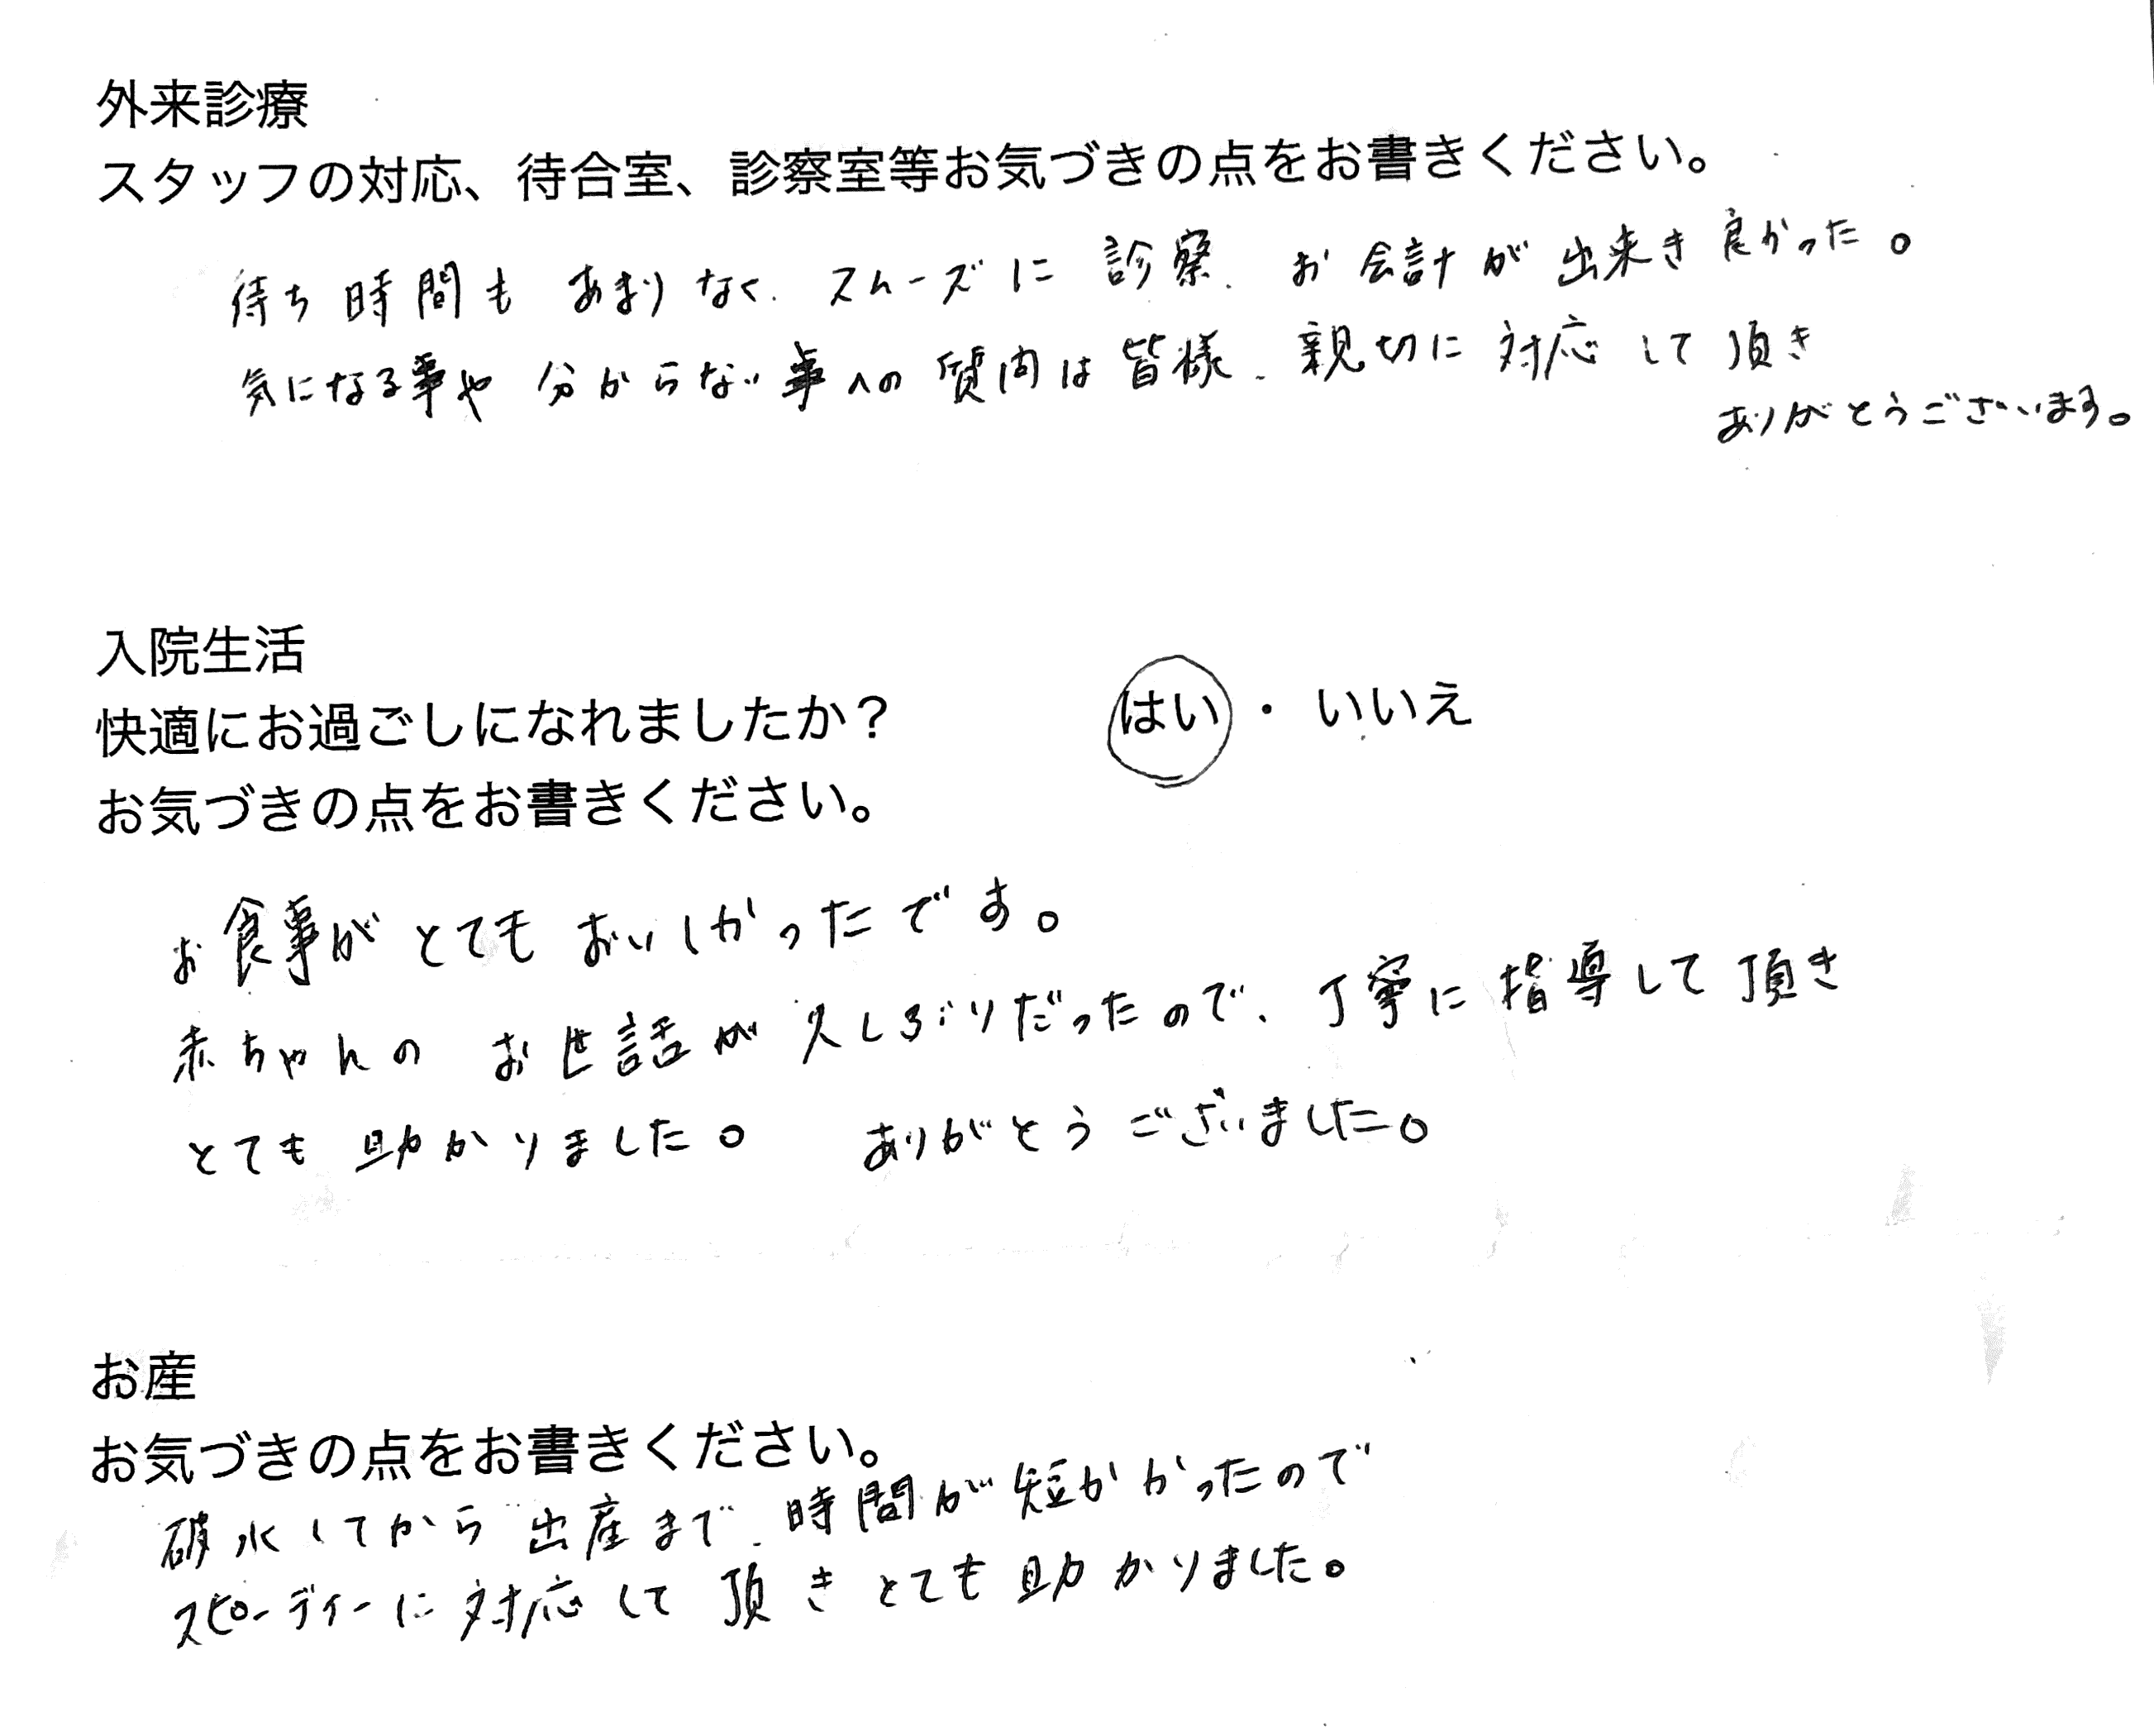 外来診療
スタッフの対応、待合室、診察室等お気づきの点をお書きください。
待ち時間もあまりなく、スムーズに診察、お会計が出来き良かった。
気になる事や分からない事への質問は皆様、親切に対応して頂き
ありがとうございます。
入院生活
快適にお過ごしになれましたか？ はい・いいえ
お気づきの点をお書きください。
お食事がとてもおいしかったです。
赤ちゃんのお世話が久しぶりだったので、丁寧に指導して頂き
とても助かりました。 ありがとうございました。
お産
お気づきの点をお書きください。
破水してから出産まで、時間が短かかったので
スピーディーに対応して頂きとても助かりました。